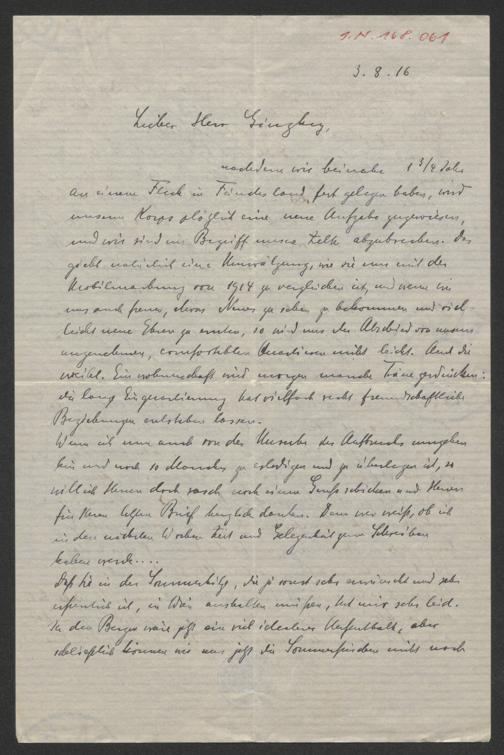 I.N. 168.061
3.8.16
Lieber Herr Ginzkey,
nachdem wir beinahe 1 3/4 Jahr
an einem Fleck in Feindesland fest gelegen haben, wird
unserm Korps plötzlich eine neue Aufgabe zugewiesen,
und wir sind im Begriff unsere Zelte abzubrechen. Das
giebt natürlich eine Umwälzung, wie sie nur mit der
Mobilmachung von 1914 zu vergleichen ist, und wenn wir
uns auch freuen, etwas Neues zu sehen zu bekommen und viel-
leicht neue Ehren zu ernten, so wird uns der Abschied von unseren
angenehmen, comfortablen Quartieren nicht leicht. Auch die
weibl. Einwohnerschaft wird morgen manche Träne zerdrücken:
die lange Einquartierung hat vielfach recht freundschaftliche
Beziehungen entstehen lassen.
Wenn ich nun auch von der Unruhe des Aufbruchs umgeben
bin und noch so Manches zu erledigen und zu überlegen ist, so
will ich Ihnen doch rasch noch einen Gruß schicken und Ihnen
für Ihren letzten Brief herzlich danken. Denn wer weiß, ob ich
in den nächsten Wochen Zeit und Gelegenheit zum Schreiben
haben werde....
Daß Sie in der Sommerhitze, die ja sonst sehr erwünscht und sehr
erfreulich ist, in Wien aushalten müssen, tut mir sehr leid.
In den Bergen wäre jetzt ein viel idealerer Aufenthalt, aber
schließlich können wir uns jetzt die Sommerfrischen nicht nach